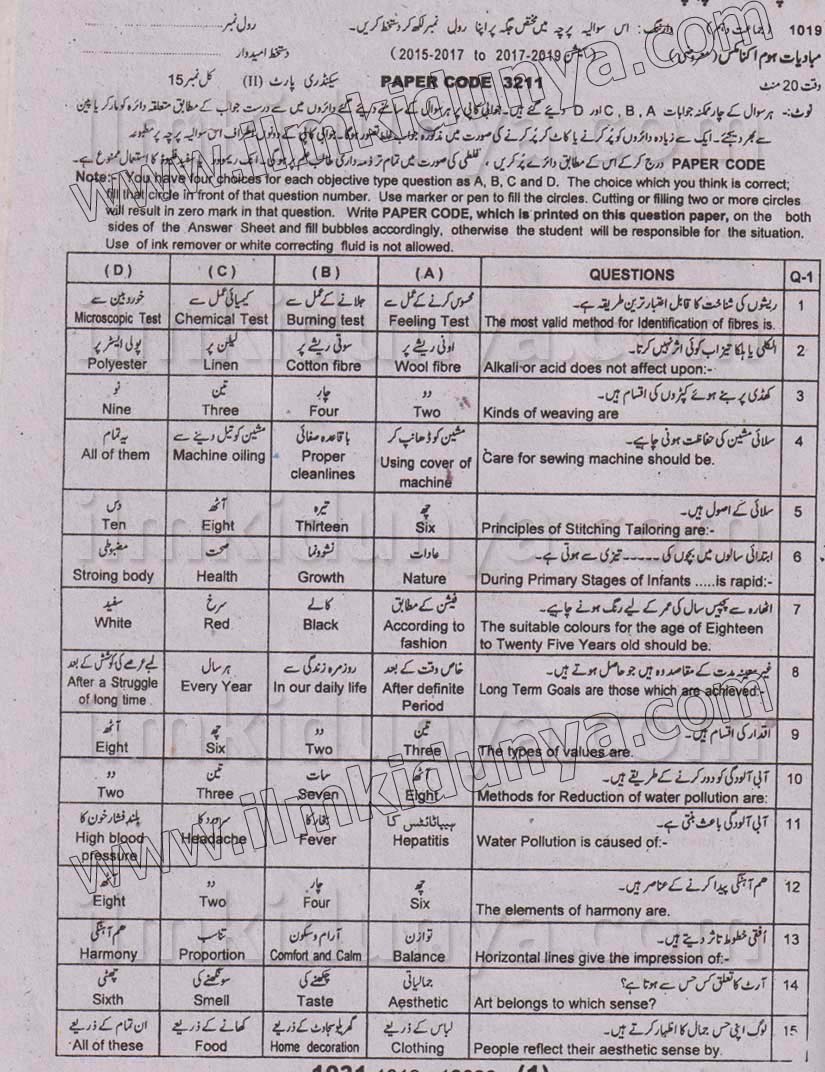 1019 (جماعت دہم) وارننگ: اس سوالیہ پرچہ میں مختص جگہ پر اپنا رول نمبر لکھ کر دستخط کریں۔ رول نمبر
مبادیات ہوم اکنامکس (معروضی) (سیشن 2015-2017 to 2017-2019) دستخط امیدوار
وقت 20 منٹ PAPER CODE 3211 سیکنڈری پارٹ (II) کل نمبر 15
نوٹ:- ہر سوال کے چار ممکنہ جوابات C, B, A اور D دیئے گئے ہیں۔ جوابی کاپی پر ہر سوال کے سامنے دیئے گئے دائروں میں سے درست جواب کے مطابق متعلقہ دائرہ کو مارکر یا پین
سے بھر دیجئے۔ ایک سے زیادہ دائروں کو پُر کرنے یا کاٹ کر پُر کرنے کی صورت میں مذکورہ جواب غلط تصور ہوگا۔ جوابی کاپی کے دونوں اطراف اس سوالیہ پرچہ پر مطبوعہ
PAPER CODE درج کر کے اس کے مطابق دائرے پُر کریں، غلطی کی صورت میں تمام تر ذمہ داری طالب علم پر ہوگی۔ انک ریموور یا سفید فلیوڈ کا استعمال ممنوع ہے۔
Note:- You have four choices for each objective type question as A, B, C and D. The choice which you think is correct;
fill that circle in front of that question number. Use marker or pen to fill the circles. Cutting or filling two or more circles
will result in zero mark in that question. Write PAPER CODE, which is printed on this question paper, on the both
sides of the Answer Sheet and fill bubbles accordingly, otherwise the student will be responsible for the situation.
Use of ink remover or white correcting fluid is not allowed.
(D) (C) (B) (A) QUESTIONS Q-1
خوردبین سے کیمیائی عمل سے جلانے کے عمل سے محسوس کرنے کے عمل سے ریشوں کی شناخت کا قابل اعتبار ترین طریقہ ہے۔ 1
Microscopic Test Chemical Test Burning test Feeling Test The most valid method for Identification of fibres is.
پولی ایسٹر پر لینن پر سوتی ریشے پر اونی ریشے پر الکلی یا ہلکا تیزاب کوئی اثر نہیں کرتا۔ 2
Polyester Linen Cotton fibre Wool fibre Alkali or acid does not affect upon:-
نو تین چار دو کھڈی پر بنے ہوئے کپڑوں کی اقسام ہیں۔ 3
Nine Three Four Two Kinds of weaving are
یہ تمام مشین کو تیل دینے سے باقاعدہ صفائی مشین کو ڈھانپ کر سلائی مشین کی حفاظت ہونی چاہیے۔ 4
All of them Machine oiling Proper Using cover of Care for sewing machine should be.
cleanlines machine
دس آٹھ تیرہ چھ سلائی کے اصول ہیں۔ 5
Ten Eight Thirteen Six Principles of Stitching Tailoring are:-
مضبوطی صحت نشوونما عادات ابتدائی سالوں میں بچوں کی ----- تیزی سے ہوتی ہے۔ 6
Stroing body Health Growth Nature During Primary Stages of Infants .....is rapid:-
سفید سرخ کالے فیشن کے مطابق اٹھارہ سے پچیس سال کی عمر کے لیے رنگ ہونے چاہیے۔ 7
White Red Black According to The suitable colours for the age of Eighteen
fashion to Twenty Five Years old should be.
لمبے عرصے کی کوشش کے بعد ہر سال روزمرہ زندگی سے خاص وقت کے بعد غیر معینہ مدت کے مقاصد وہ ہیں جو حاصل ہوتے ہیں۔ 8
After a Struggle Every Year In our daily life After definite Long Term Goals are those which are achieved:-
of long time Period
آٹھ چھ دو تین اقدار کی اقسام ہیں۔ 9
Eight Six Two Three The types of values are.
دو تین سات آٹھ آبی آلودگی کو دور کرنے کے طریقے ہیں۔ 10
Two Three Seven Eight Methods for Reduction of water pollution are:
بلند فشار خون کا سر درد کا بخار کا ہیپاٹائٹس کا آبی آلودگی باعث بنتی ہے۔ 11
High blood Headache Fever Hepatitis Water Pollution is caused of:-
pressure
آٹھ دو چار چھ ہم آہنگی پیدا کرنے کے عناصر ہیں۔ 12
Eight Two Four Six The elements of harmony are.
ہم آہنگی تناسب آرام و سکون توازن اُفقی خطوط تاثر دیتے ہیں۔ 13
Harmony Proportion Comfort and Calm Balance Horizontal lines give the impression of:-
چھٹی سونگھنے کی چکھنے کی جمالیاتی آرٹ کا تعلق کس حس سے ہوتا ہے؟ 14
Sixth Smell Taste Aesthetic Art belongs to which sense?
ان تمام کے ذریعے کھانے کے ذریعے گھریلو سجاوٹ کے ذریعے لباس کے ذریعے لوگ اپنی حس جمال کا اظہار کرتے ہیں۔ 15
All of these Food Home decoration Clothing People reflect their aesthetic sense by.
www.ilmkidunya.com
www.ilmkidunya.com
ilmkidunya.com